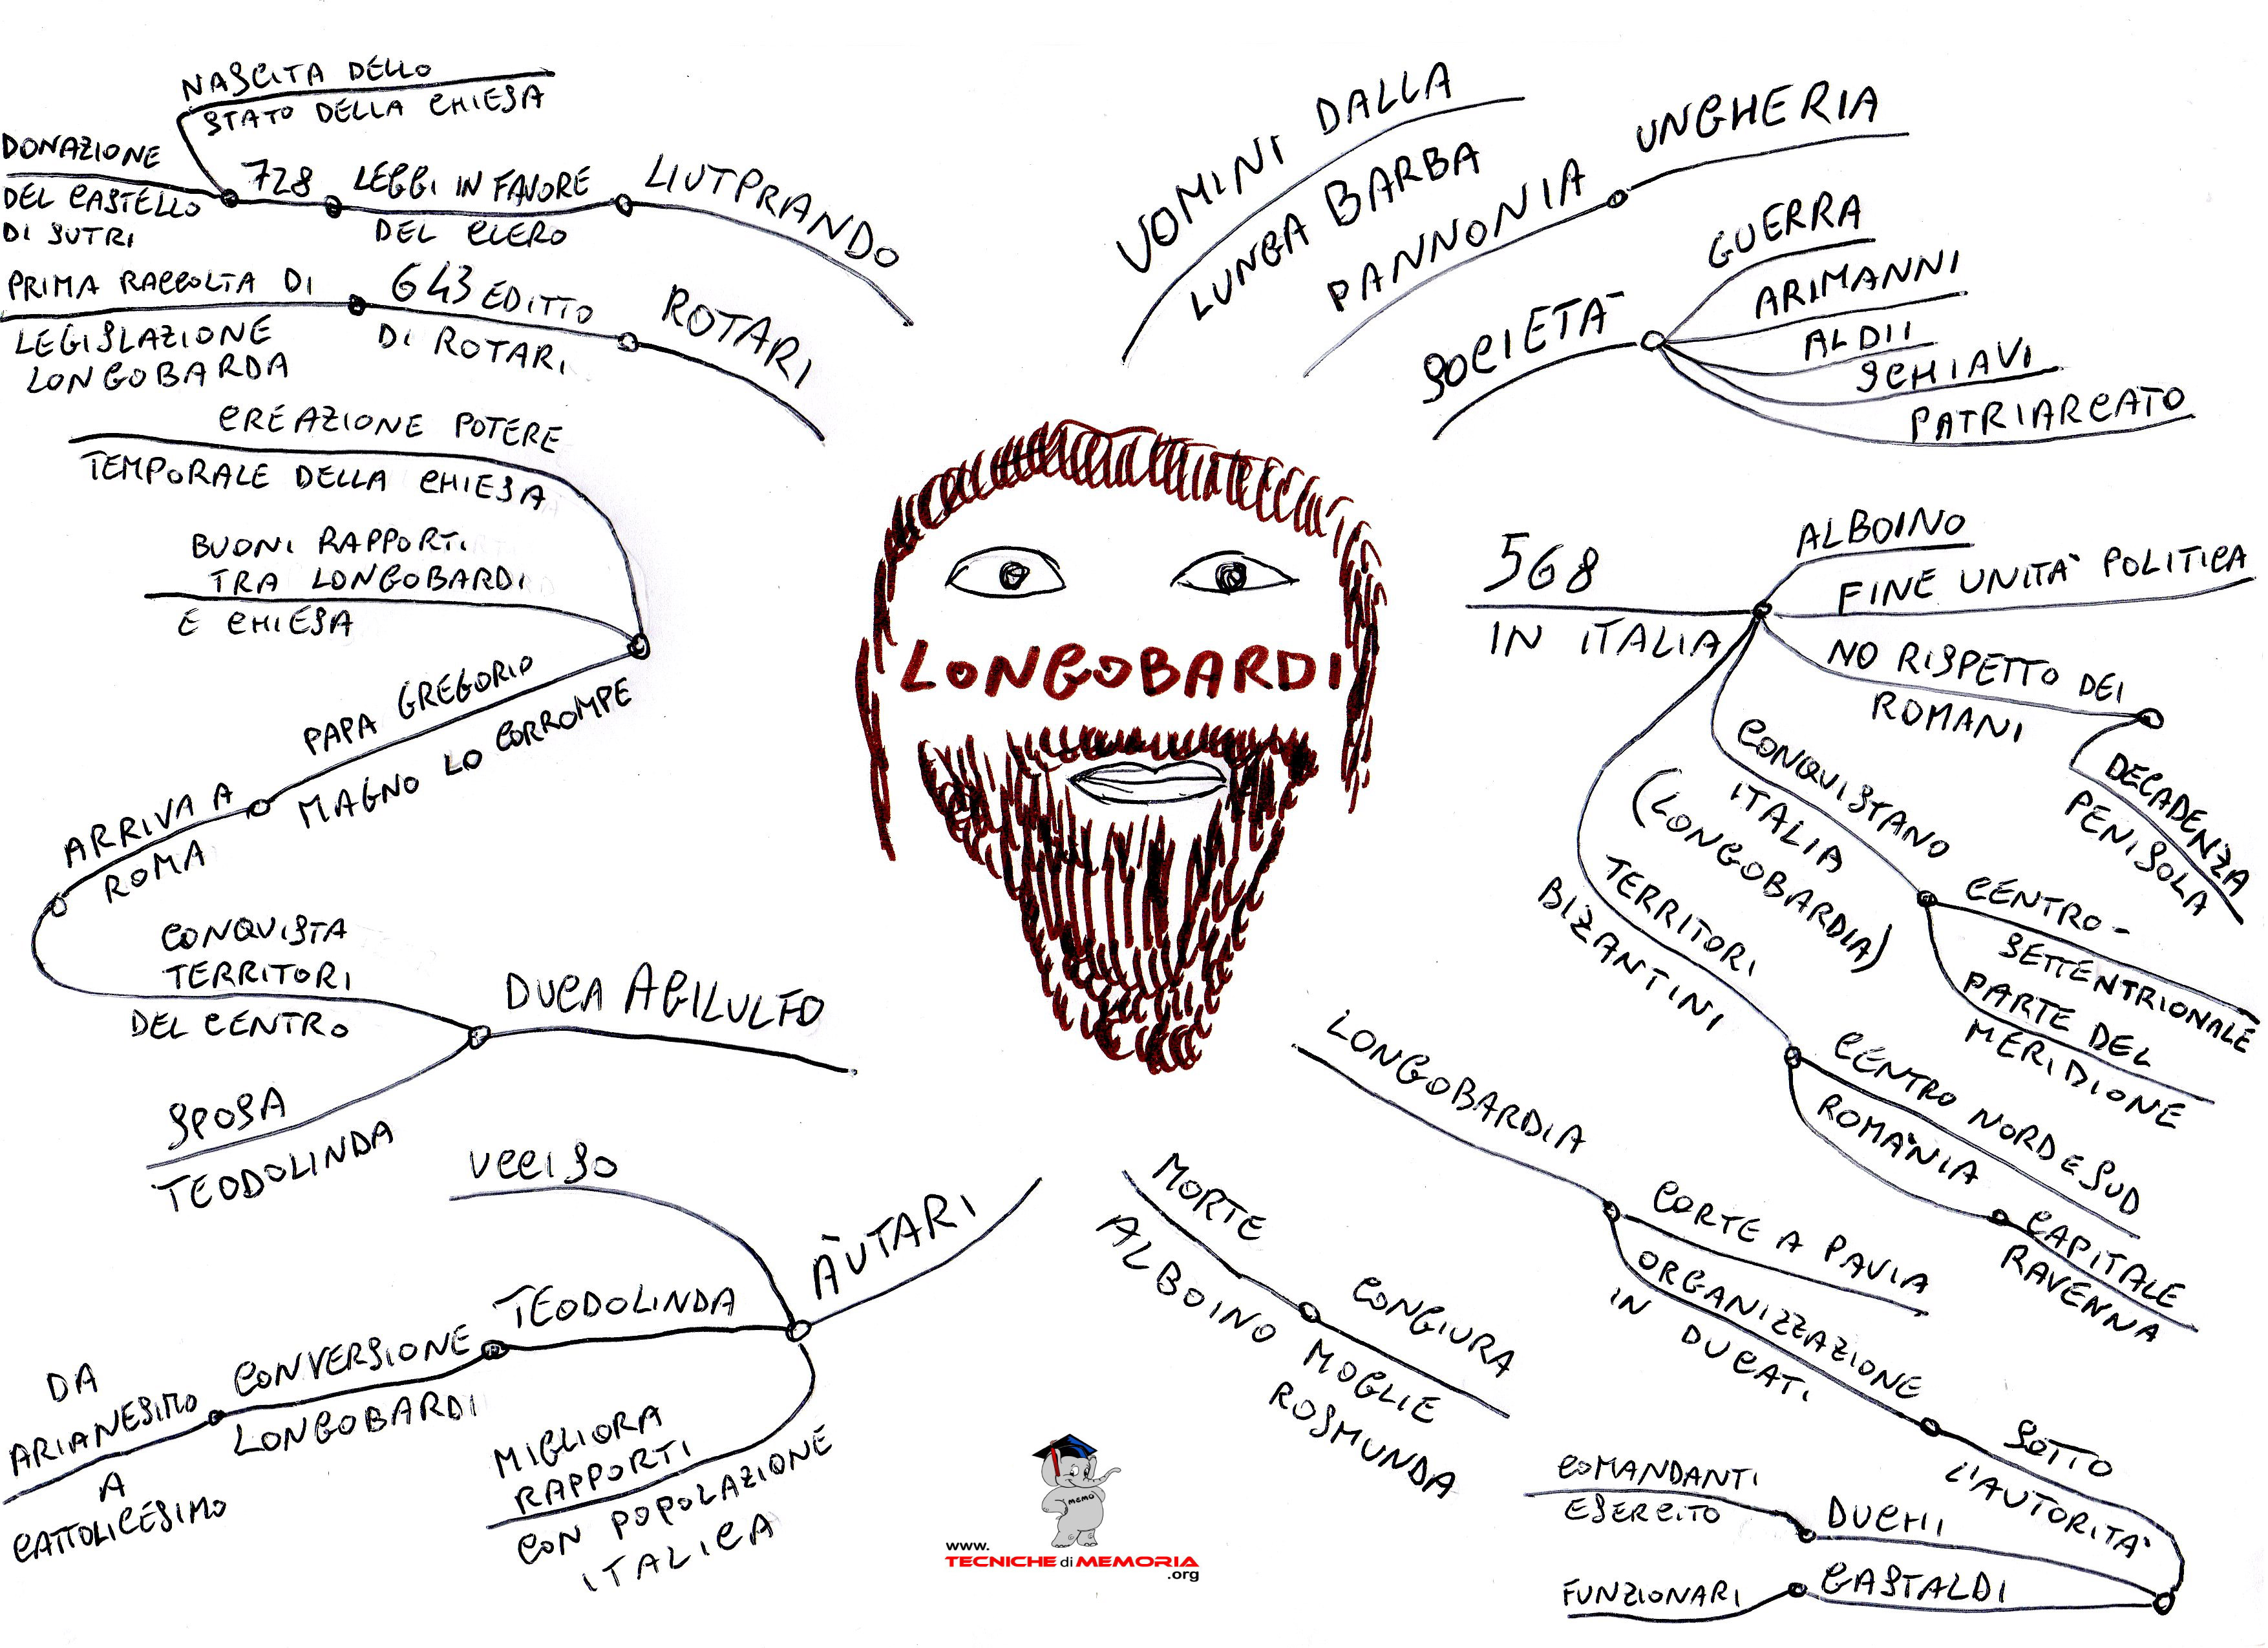 LONGOBARDI
UOMINI DALLA
LUNGA BARBA
PANNONIA
UNGHERIA
SOCIETÀ
GUERRA
ARIMANNI
ALDII
SCHIAVI
PATRIARCATO
568
IN ITALIA
ALBOINO
FINE UNITÀ POLITICA
NO RISPETTO DEI
ROMANI
DECADENZA
PENISOLA
CONQUISTANO
ITALIA
(LONGOBARDIA)
CENTRO-
SETTENTRIONALE
PARTE DEL
MERIDIONE
TERRITORI
BIZANTINI
CENTRO NORD E SUD
ROMÀNIA
CAPITALE
RAVENNA
LONGOBARDIA
CORTE A PAVIA
ORGANIZZAZIONE
IN DUCATI
SOTTO
L'AUTORITÀ
DUCHI
COMANDANTI
ESERCITO
GASTALDI
FUNZIONARI
MORTE
ALBOINO
CONGIURA
MOGLIE
ROSMUNDA
ÀUTARI
UCCISO
TEODOLINDA
CONVERSIONE
LONGOBARDI
DA
ARIANESIMO
A
CATTOLICESIMO
MIGLIORA
RAPPORTI
CON POPOLAZIONE
ITALICA
DUCA AGILULFO
SPOSA
TEODOLINDA
CONQUISTA
TERRITORI
DEL CENTRO
ARRIVA A
ROMA
PAPA GREGORIO
MAGNO LO CORROMPE
BUONI RAPPORTI
TRA LONGOBARDI
E CHIESA
CREAZIONE POTERE
TEMPORALE DELLA CHIESA
ROTARI
643 EDITTO
DI ROTARI
PRIMA RACCOLTA DI
LEGISLAZIONE
LONGOBARDA
LIUTPRANDO
LEGGI IN FAVORE
DEL CLERO
728
DONAZIONE
DEL CASTELLO
DI SUTRI
NASCITA DELLO
STATO DELLA CHIESA
MEMO
www.
TECNICHE di MEMORIA
.org